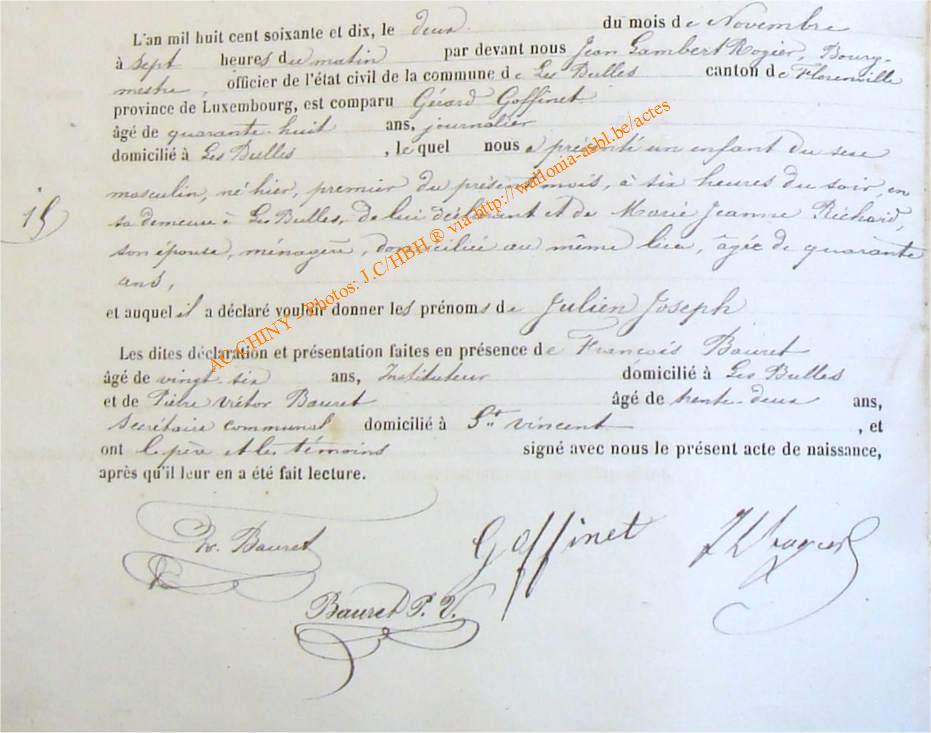 L'an mil huit cent soixante et dix, le deux du mois de Novembre
à sept heures du matin par devant nous Jean Lambert Rogier, Bourg-
mestre, officier de l'état civil de la commune de Les Bulles canton de Florenville
province de Luxembourg, est comparu Gérard Goffinet
âgé de quarante-huit ans, journalier
domicilié à Les Bulles, le quel nous a présenté un enfant du sexe
masculin, né hier, premier du présent mois, à six heures du soir, en
15
sa demeure à Les Bulles, de lui déclarant et de Marie Jeanne Richard,
son épouse, ménagère, domiciliée au même lieu, âgée de quarante
ans,
et auquel il a déclaré vouloir donner les prénoms de Julien Joseph
Les dites déclaration et présentation faites en présence de François Bauret
âgé de vingt-six ans, Instituteur domicilié à Les Bulles
et de Pierre Victor Bauret âgé de trente-deux ans,
Secrétaire communal domicilié à St Vincent, et
ont le père et les témoins signé avec nous le présent acte de naissance,
après qu'il leur en a été fait lecture.
Bauret Goffinet JLRogier
Bauret P. V.
AC CHINY - Photos: J.C/HBH ® via http://wallonia-asbl.be/actes